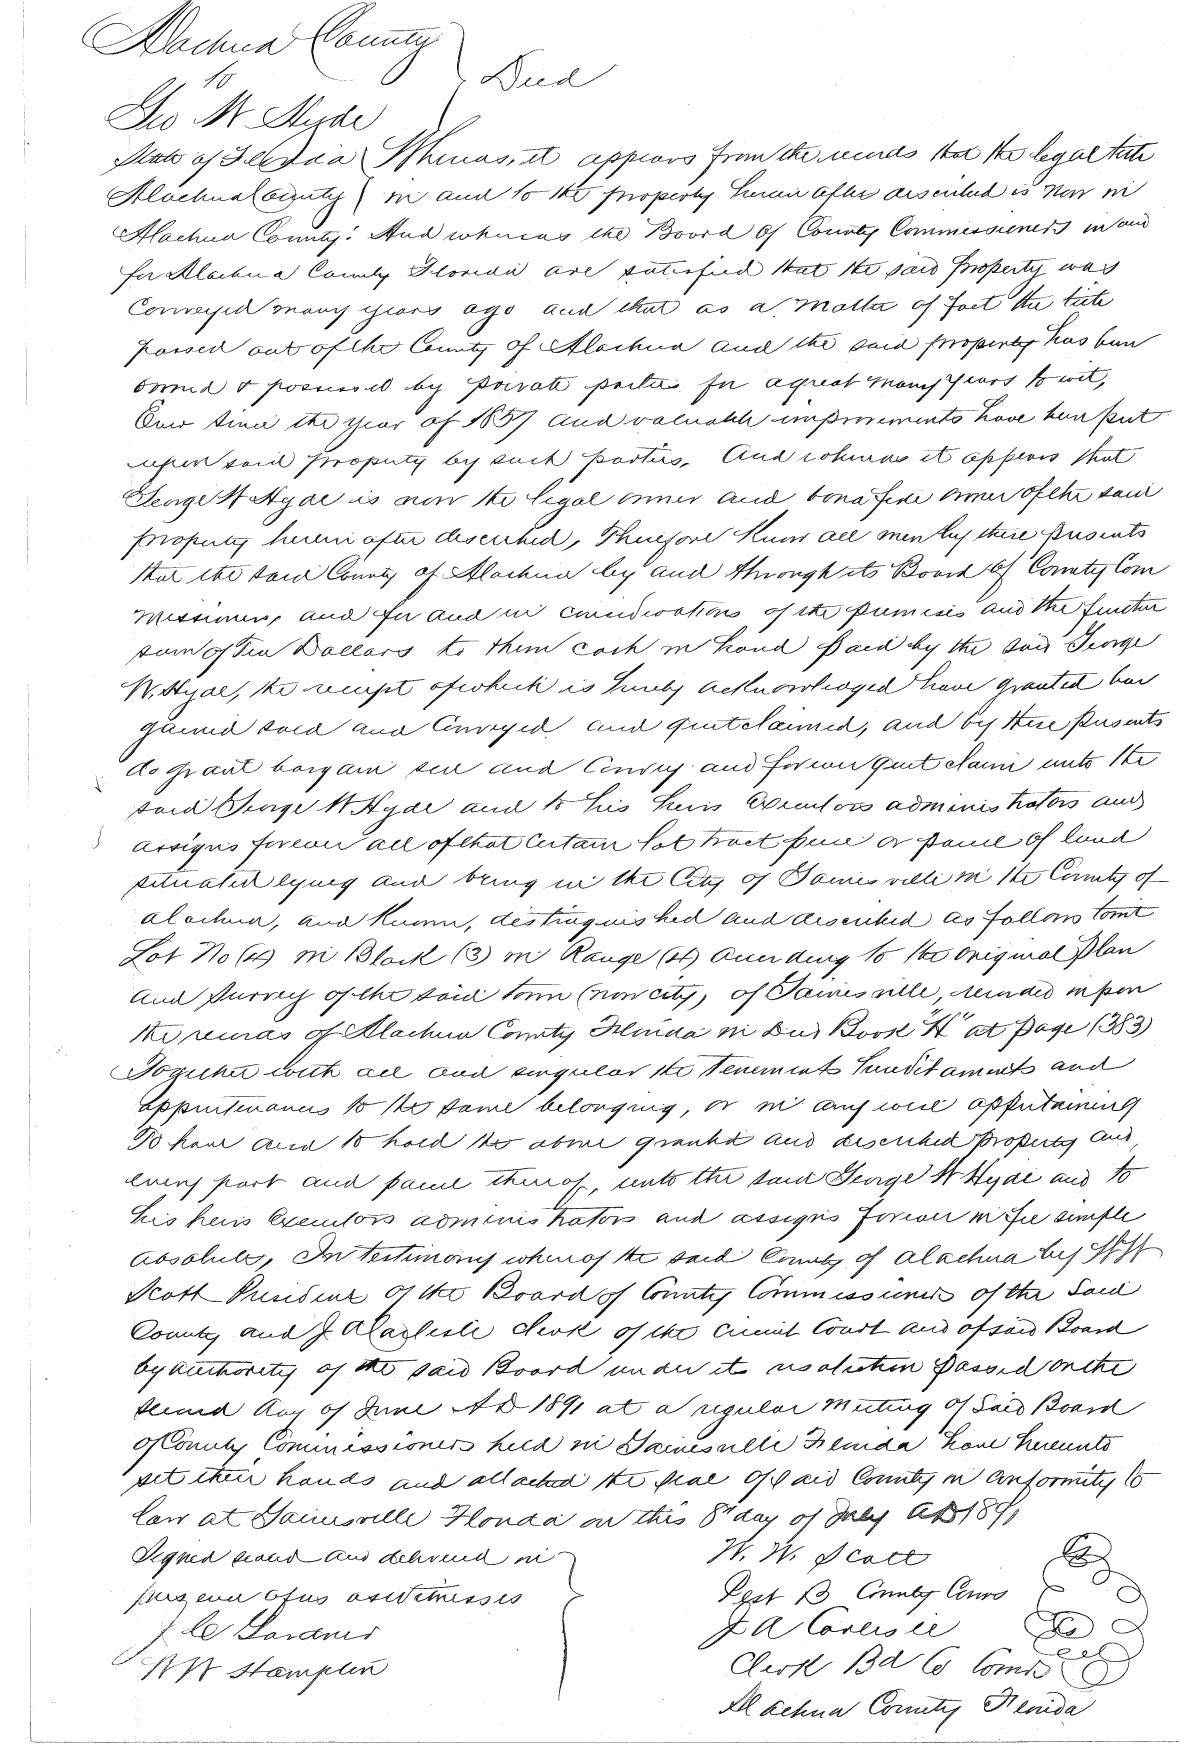 Alachua County
to
Deed
Geo W Hyde
State of Florida Whereas, it appears from the records that the legal title
Alachua County in and to the property herein after described is now in
Alachua County: And whereas the Board of County Commissioners in and
for Alachua County Florida are satisfied that the said property was
Conveyed many years ago and that as a matter of fact the title
passed out of the County of Alachua and the said property has been
owned & possessed by private parties for a great many years to wit,
Ever since the year of 1857 and valuable improvements have been put
upon said property by such parties. And whereas it appears that
George W Hyde is now the legal owner and bona fide owner of the said
property herein after described, Therefore Know all men by these presents
that the said County of Alachua by and through its Board of County Com
missioners, and for and in considerations of the premises and the further
sum of Ten Dollars to them cash in hand paid by the said George
W. Hyde, the receipt of which is hereby acknowledged have granted bar
gained sold and Conveyed and quitclaimed, and by these presents
do grant bargain sell and Convey and forever quit claim unto the
said George W Hyde and to his heirs Executors administrators and
assigns forever all of that Certain lot tract piece or parcel of land
situated lying and being in the City of Gainesville in the County of
alachua, and Known, distinguished and described as follows towit
Lot No (4) in Block (3) in Range (4) according to the original Plan
and Survey of the said town (now city) of Gainesville, recorded upon
the records of Alachua County Florida in Deed Book "H" at page (383)
Together with all and singular the tenements hereditaments and
appurtenances to the same belonging, or in any wise appertaining
To have and to hold the above granted and described property and
every part and parcel thereof, unto the said George W Hyde and to
his heirs Executors administrators and assigns forever in fee simple
absolute, In testimony whereof the said County of alachua by W W
Scott President of the Board of County Commissioners of the Said
County and J A Carlisle clerk of the circuit Court and of said Board
by authority of the said Board under its resolution passed on the
second day of June AD 1891 at a regular meeting of Said Board
of County Commissioners held in Gainesville Florida have hereunto
set their hands and attached the seal of said County in conformity to
law at Gainesville Florida on this 8th day of July AD 1891
Signed sealed and delivered in W. W. Scott
presence of us as Witnesses Pest B County Coms
J C Gardner J A Carlisle
W W Stamplin Clerk Bd Co Coms
Alachua County Florida